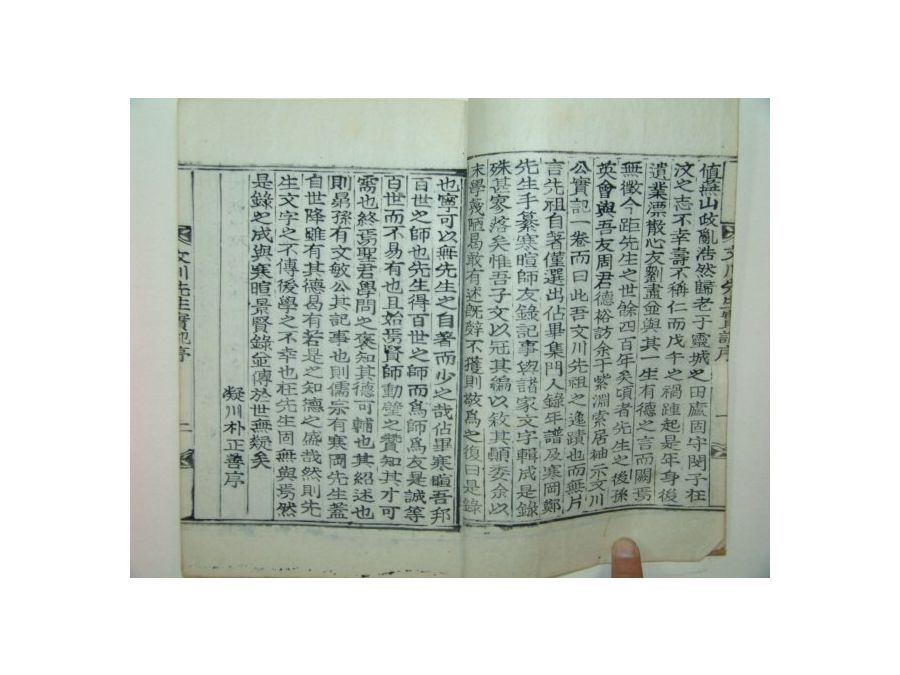 値燕山政亂浩然歸老于靈城之田廬固守閔子在
汶之志不幸壽不稱仁而戊午之禍踵起是年身後
遺業漂散心友劉盡並與其一生有德之言而闕焉
無徵今距先生之世餘四百年矣頃者先生之後孫
英會與吾友周君德裕訪余于紫淵索居袖示文川
公實記一卷而曰此吾文川先祖之逸蹟也而無片
言先祖自著僅選出佔畢集門人錄年譜及寒岡鄭
先生手纂寒暄師友錄記事與諸家文字輯成是錄
殊甚寥落矣惟吾子文以冠其編以敘其顚委余以
末學義陋曷敢有述旣辭不獲則敬爲之復曰是錄
也寧可以無先生之自著而少之哉佔畢寒暄吾邦
百世之師也先生得百世之師而爲師爲友是誠等
百世而不易有也且始焉賢師動璧之贊知其才可
需也終焉聖君學問之褒知其德可輔也其紹述也
則昴孫有文敏公其記事也則儒宗有寒岡先生蓋
自世降雖有其德曷有若是之知德之盛哉然則先
生文字之不傳後學之不幸也在先生固無與焉然
是錄之成與寒暄景賢錄並傳於世無疑矣
凝川朴正善序
文川先生實記序
一
文川先生實記序
二